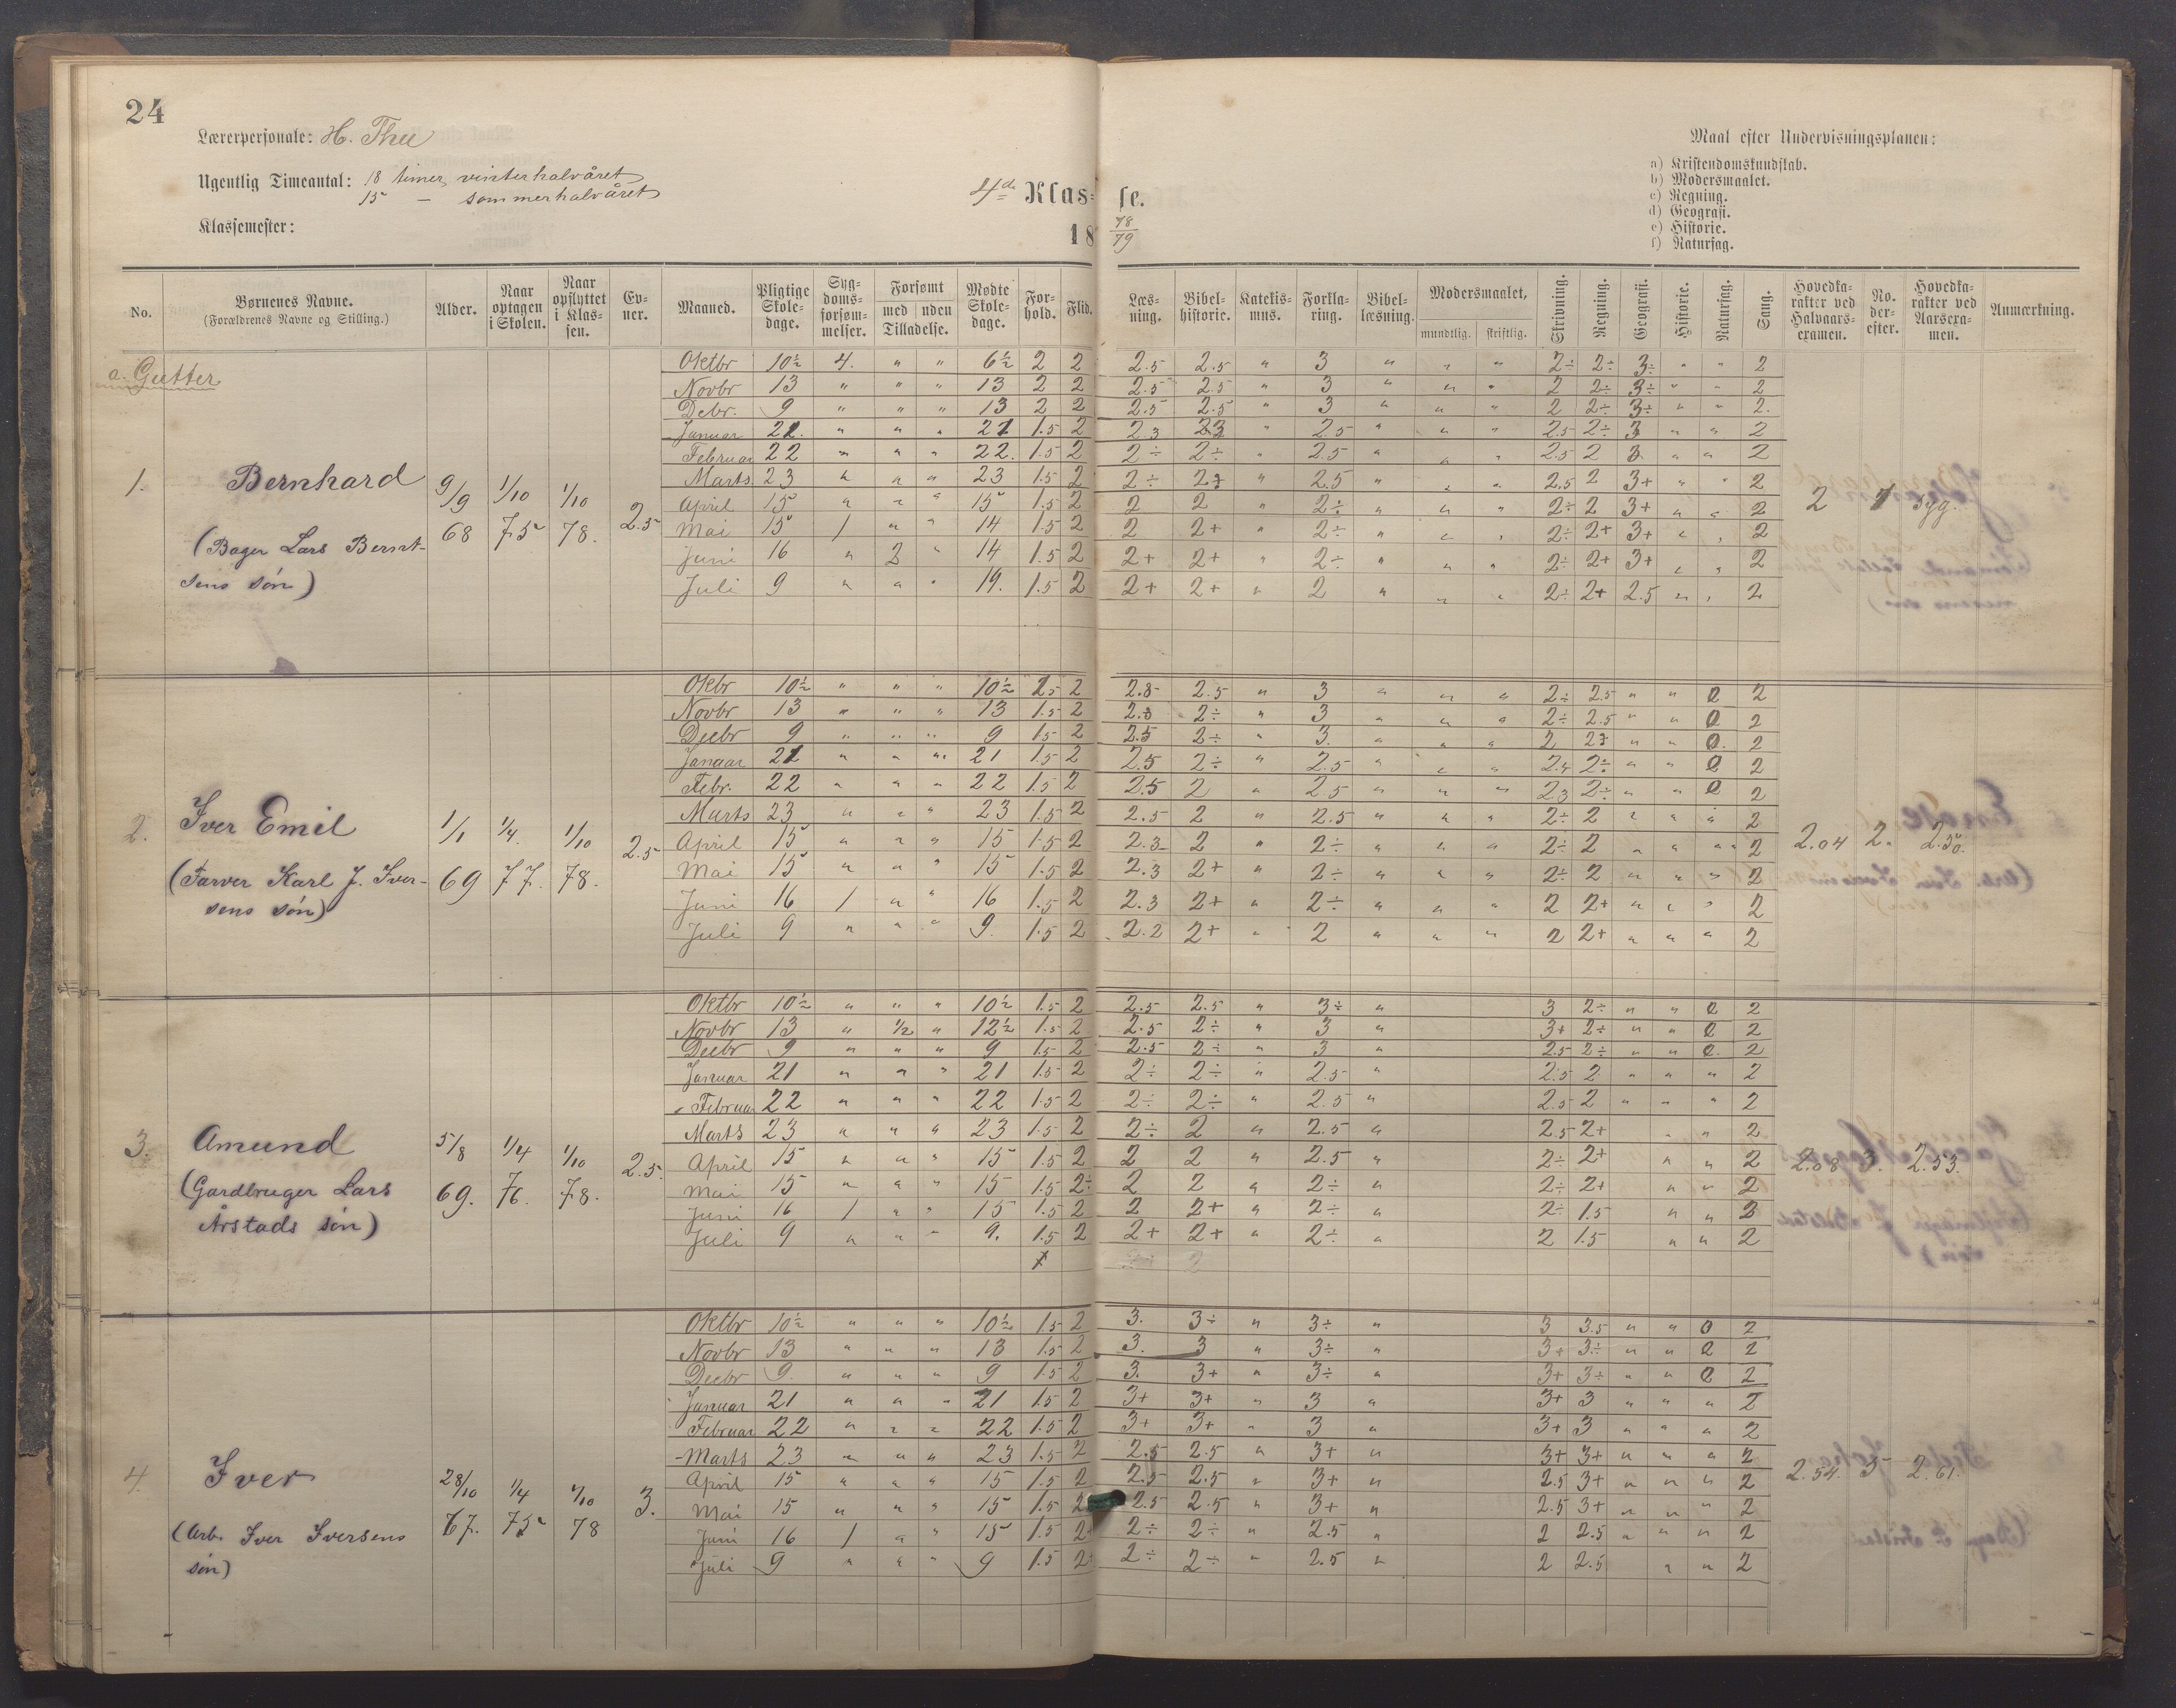 24
Lærerpersonale: H. Thu
Ugentlig Timeantal: 18 timer vinterhalvåret
15 — sommerhalvåret
Klassemester:
4de Klas- se.
18 78/79
Maal efter Undervisningsplanen:
a) Kristendomskundskab.
b) Modersmaalet.
c) Regning.
d) Geografi.
e) Historie.
f) Naturfag.
No. | Børnenes Navne. (Forældrenes Navne og Stilling.) | Alder. | Naar optagen i Skolen. | Naar opflyttet i Klassen. | Evner. | Maaned. | Pligtige Skoledage. | Sygdomsforsømmelser. | Forsømt med uden Tilladelse. | Mødte Skoledage. | Forhold. | Flid. | Læsning. | Bibelhistorie. | Katekismus. | Forklaring. | Bibellæsning. | Modersmaalet, mundtlig. skriftlig. | Skrivning. | Regning. | Geografi. | Historie. | Naturfag. | Sang. | Hovedkarakter ved Halvaarsexamen. | No. derefter. | Hovedkarakter ved Aarsexamen. | Anmærkning.
a. Gutter
1. Bernhard (Bager Lars Berntsens søn) 9/9 68 1/10 75 1/10 78. 2.5
Oktbr 10½ 4. " " 6½ 2 2 2.5 2.5 " 3 " " " 2÷ 2÷ 3÷ " " 2
Novbr 13 " " " 13 2 2 2.5 2.5 " 3 " " " 2 2÷ 3÷ " " 2
Debr. 9 " " " 13 2 2 2.5 2.5 " 3 " " " 2 2÷ 3÷ " " 2.
Januar 21. " " " 21 1.5 2 2.3 2.3 " 2.5 " " " 2.5 2÷ 3 " " 2
Februar 22 " " " 22. 1.5 2 2÷ 2÷ " 2.5 " " " 2.5 2 3 " " 2
Marts. 23 " " " 23 1.5 2 2÷ 2.3 " 2.5 " " " 2.5 2 3+ " " 2
April 15 " " " 15 1.5 2 2 2 " 2÷ " " " 2÷ 2 3+ " " 2
Mai 15 1 " " 14 1.5 2 2 2+ " 2÷ " " " 2÷ 2+ 3+ " " 2
Juni 16 " 2 " 14 1.5 2 2+ 2+ " 2÷ " " " 2÷ 2+ 3+ " " 2
Juli 9 " " " 19. 1.5 2 2+ 2+ " 2 " " " 2÷ 2+ 2.5 " " 2
2 1 syg.
2. Iver Emil (Farver Karl J. Iversens søn) 1/1 69 1/4. 77. 1/10 78. 2.5
Oktbr 10½ " " " 10½ 1.5 2 2.8 2.5 " 3 " " " 2÷ 2.5 " " 0 2
Novbr 13 " " " 13 1.5 2 2.8 2÷ " 3 " " " 2÷ 2.5 " " 0 2
Decbr 9 " " " 9 1.5 2 2.5 2÷ " 3. " " " 2 2.3 " " 0. 2
Januar 21 " " " 21 1.5 2 2.5 2÷ " 2.5 " " " 2.4 2÷ " " 0 2
Febr. 22 " " " 22 1.5 2 2.5 2 " 2.5 " " " 2.3 2÷ " " 0 2
Marts 23 " " " 23 1.5 2 2.5 2 " 2.5 " " " 2÷ 2 " " " 2
April 15 " " " 15 1.5 2 2.3 2 " 2÷ " " " 2÷ 2 " " " 2
Mai 15 " " " 15 1.5 2 2.3 2+ " 2÷ " " " 2÷ 2 " " " 2
Juni 16 1 " " 16 1.5 2 2.3 2+ " 2÷ " " " 2 2+ " " " 2
Juli 9 " " " 9. 1.5 2 2.2 2+ " 2 " " " 2 2+ " " " 2
2.04 2. 2.50.
3. Amund (Gardbruger Lars Årstads søn) 5/8 69. 1/4 76. 1/10 78. 2.5.
Oktbr 10½ " " " 10½ 1.5 2 2.5 2.5 " 3÷ " 3 2÷ " " 0 2
Novbr 13 " ½ " 12½ 1.5 2 2.5 2÷ " 3 " 3+ 2÷ " " 0 2
Decbr 9 " " " 9 1.5 2 2.5 2÷ " 3 " 2.5 2÷ " " 0. 2
Januar 21 " " " 21 1.5 2 2÷ 2÷ " 2.5 " 2.5 2 " " " 2
Februar 22 " " " 22 1.5 2 2÷ 2÷ " 2.5 " 2.5 2 " " " 2
Marts 23 " " " 23 1.5 2 2÷ 2 " 2.5 " 2.5 2+ " " 2
April 15 " " " 15 1.5 2 2 2 " 2.5 " 2÷ 2+ " " 2
Mai 15 " " " 15 1.5 2÷ 2 2 " 2÷ " 2÷ 2+ " " 2
Juni 16 1 " " 15 1.5 2 2 2+ " 2÷ " 2÷ 1.5 " " 2
Juli 9 " " " 9. 1.5 2 2+ 2+ " 2÷ " 2 1.5 " " 2
2.08 3. 2.53.
4. Iver (Arb. Iver Iversens søn) 28/10 67. 1/4 75 1/10 78 3.
Oktbr 10½ " " " 10½ 1.5 2 3. 3÷ " 3÷ " 3 3.5 " " 0 2
Novbr 13 " " " 13 1.5 2 3. 3 " 3÷ " 3+ 3÷ " " 0 2
Decbr 9. " " " 9 1.5 2 3. 3+ " 3÷ " 3+ 3÷ " " 0 2
Januar 21 " " " 21 1.5 2 3+ 3+ " 3 " 3+ 3 " " " 2
Februar 22 " " " 22 1.5 2 3+ 3+ " 3 " 3+ 3 " " " 2
Marts 23 " " " 23 1.5 2 2.5 2.5 " 3+ " 3+ 3+ " " " 2
April 15 " " " 15 1.5 2 2.5 2.5 " 3+ " 2.5 3+ " " " 2
Mai 15 " " " 15 1.5 2 2.5 2.5 " 3+ " 2.5 3+ " " " 2
Juni 16 1 " " 15 1.5 2 2÷ 2÷ " 2.5 " 2 2.5 " " " 2
Juli 9 " " " 9 1.5 2 2÷ 2÷ " 2.5 " 2 2.5 " " 2
2.54. 5 2.61.